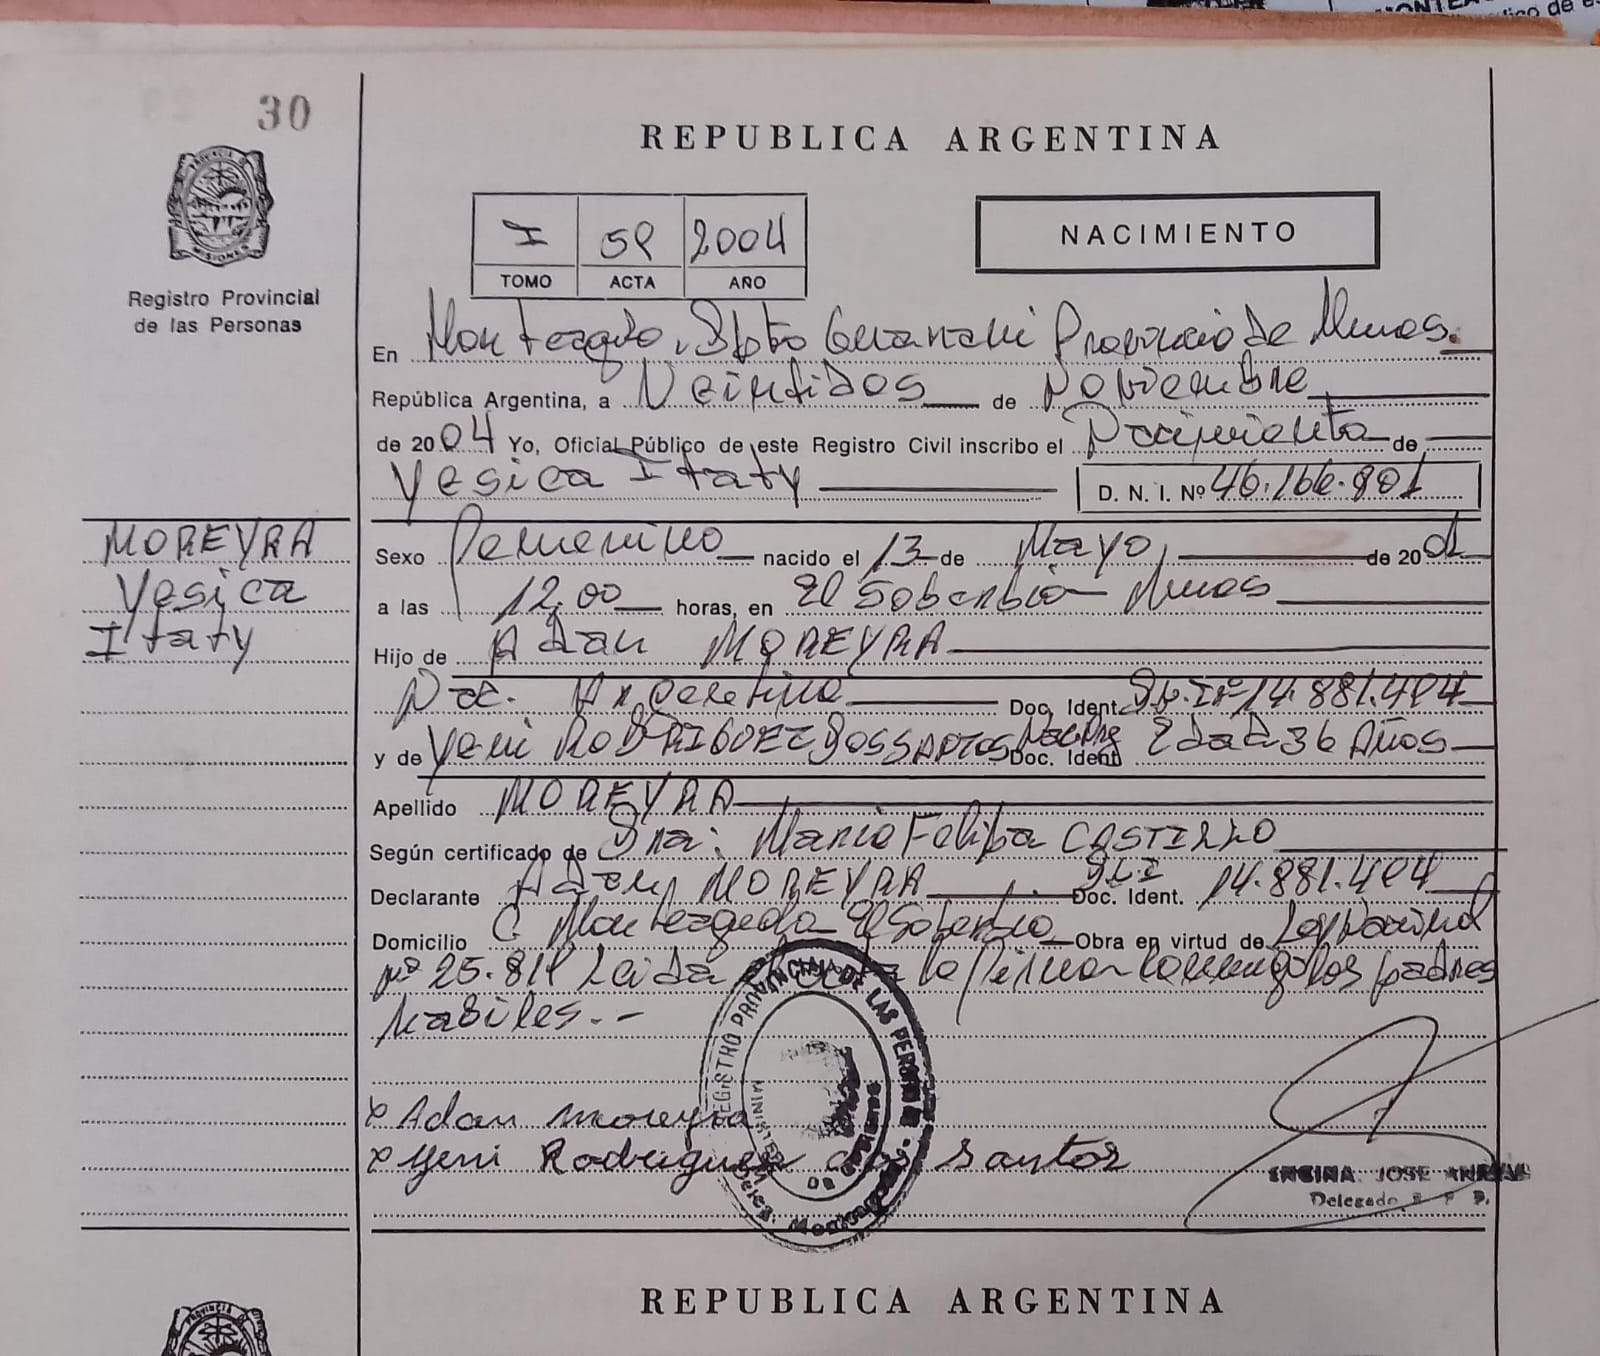 30
REPUBLICA ARGENTINA
PROVINCIA DE MISIONES
Registro Provincial
de las Personas
I 59 2004
TOMO ACTA AÑO
NACIMIENTO
En Monteagudo, Dpto Guarani Provincia de Mnes.
República Argentina, a Veintidos de Noviembre
de 2004 Yo, Oficial Público de este Registro Civil inscribo el Nacimiento de
Yesica Itaty D. N. I. Nº 46.166.801
MOREYRA
Yesica
Itaty
Sexo Femenino nacido el 13 de Mayo de 2001
a las 12,00 horas, en El Soberbio Mnes
Hijo de Adan MOREYRA
Nac. Argentina Doc. Ident. D.N.I Nº 14.881.494
y de Yeni RODRIGUEZ DOSSANTOS Doc. Ident Edad 36 Años
Apellido MOREYRA
Según certificado de Sra: Maria Felipa CASTILLO
Declarante Adan MOREYRA Doc. Ident. D.N.I 14.881.494
Domicilio C. Monteagudo El Soberbio Obra en virtud de Ley Nacional
Nº 25.819 Leida el acta la firman conmigo los padres
habiles.-
x Adan Moreyra
x Yeni Rodriguez dos santos
REGISTRO PROVINCIAL DE LAS PERSONAS
Deleg. Monteagudo
ENCINA JOSE ANIBAL
Delegado R. P. P.
REPUBLICA ARGENTINA